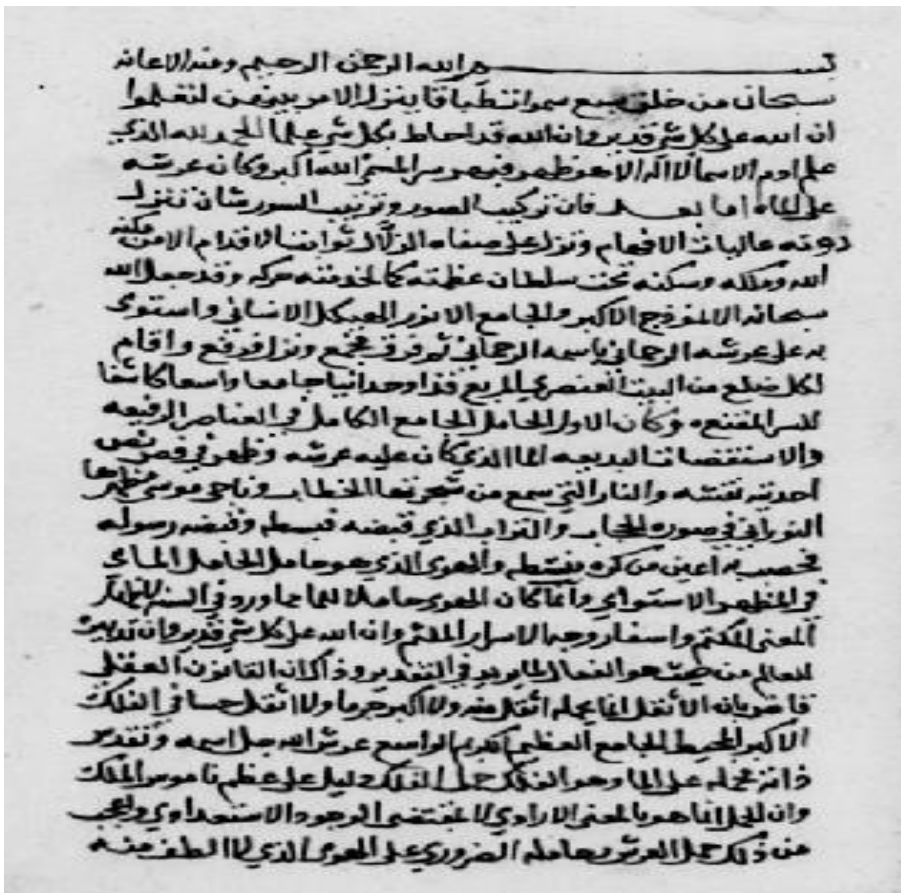 بسم الله الرحمن الرحيم ومنه الاعانه
سبحان من خلق سبع سموات طباقا يتنزل الامر بينهن لتعلموا
ان الله على كل شى قدير وان الله قد احاط بكل شى علما الحمد لله الذي
علم ادم الاسما الاكه الا هو فظهر سر المسخر الله اكبر وكان عرشه
على الماء اما بعد فان تركيب الصور وترتيب السور شان تنزل
دونه عاليات الافهام ونزل على صفاه الزلال ثوابت الاقدام الا من مكنه
الله وملكه وسكنه تحت سلطان عظمته كما لخدمته حركه وقد جعل الله
سبحانه الانموذج الاكبر والجامع الانور الهيكل الانساني واستوى
به على عرشه الرحماني باسمه الرحماني ثم فرق فجمع ونزل فرفع واقام
لكل ضلع من البيت العنصري المربع فذا وحدانيا جامعا واسعا كاشفا
للسر المقنع وكان الاول الحامل الجامع الكامل في العناصر الرفيعه
والاستقصات البديعه الما الذي كان عليه عرشه وظهر في فص نص
احديته نقشه والنار التي سمع من شجرتها الخطاب وناجى موسى مظهرها
النوراني في صوره الحجاب والتراب الذي قبضه فبسطه وقبضه رسوله
فحصب به اعين من كره والهوى الذي هو حامل الحامل المائى
في المظهر الاستوائي وانما كان الهوى حاملا للما بما ورد في السنه لاظهار
المعنى المكتم واسفار وجه الاسرار الملثم وان الله على كل شى قدير وان تدبيره
للعالم من حيث هو الفعال لما يريد في التقدير وذاك ان القانون العقلى
قاض بانه الاثقل انما يحمله اثقل منه ولا اكبر جرما ولا اثقل حسا في الفلك
الاكبر المحيط الجامع العظيم الكريم الواسع عرش الله جل اسمه وتقدير
ذاته محمله على الما وهو الفلك حمل الفلك دليل على عظم ناموس الملك
وان الحمل انما هو بالمعنى الارادي لا بمقتضى الوجود والاستعدادي والعجب
من ذلك حمل العرش وحامله الضروري على الهوى الذي لا الطف منه